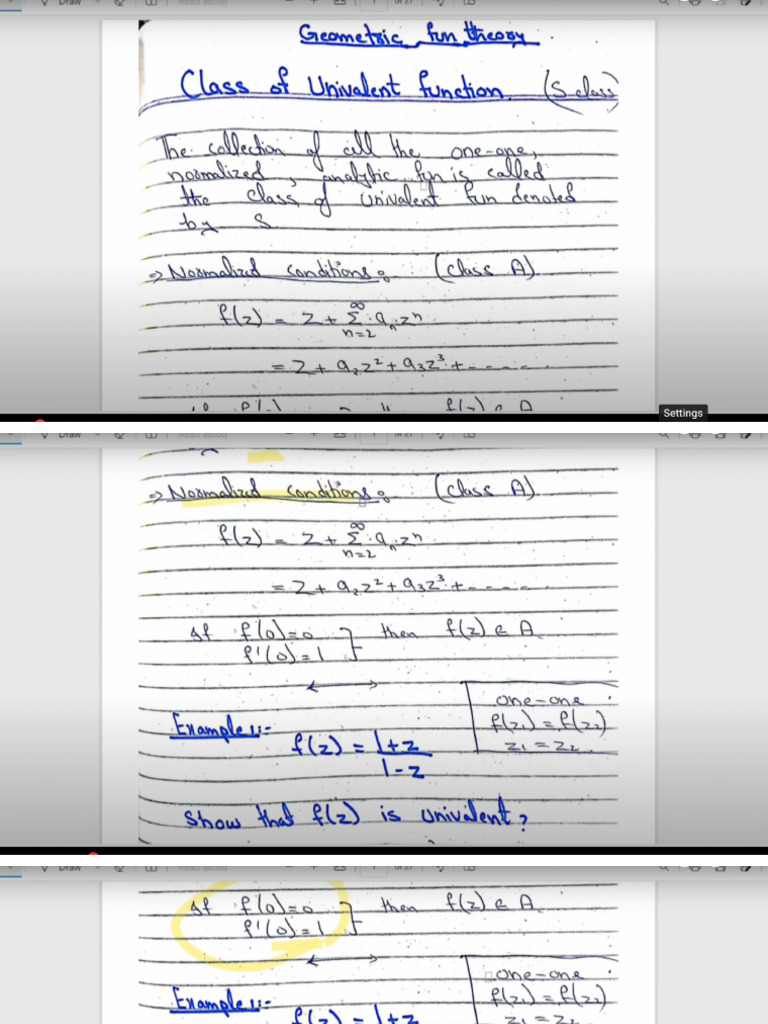 Draw
Read aloud
of 27
Geometric fun theory
Class of Univalent function. (S class)
The collection of all the one-one,
normalized, analytic fun is called
the class of univalent fun denoted
by S
⇒ Normalized conditions: (Class A)
f(z) = z + ∞Σn=2 aₙ zⁿ
= z + a₂z² + a₃z³ + - - - - -
Settings
Draw
Read aloud
of 27
⇒ Normalized conditions: (Class A)
f(z) = z + ∞Σn=2 aₙ zⁿ
= z + a₂z² + a₃z³ + - - - - -
If f(0)=0 then f(z) ∈ A
f'(0)=1
one-one
f(z₁) = f(z₂)
z₁ = z₂
Example 1:-
f(z) = 1+z
1-z
Show that f(z) is univalent?
Draw
Read aloud
of 27
If f(0)=0 then f(z) ∈ A
f'(0)=1
one-one
f(z₁) = f(z₂)
z₁ = z₂
Example 1:-
f(z) = 1+z